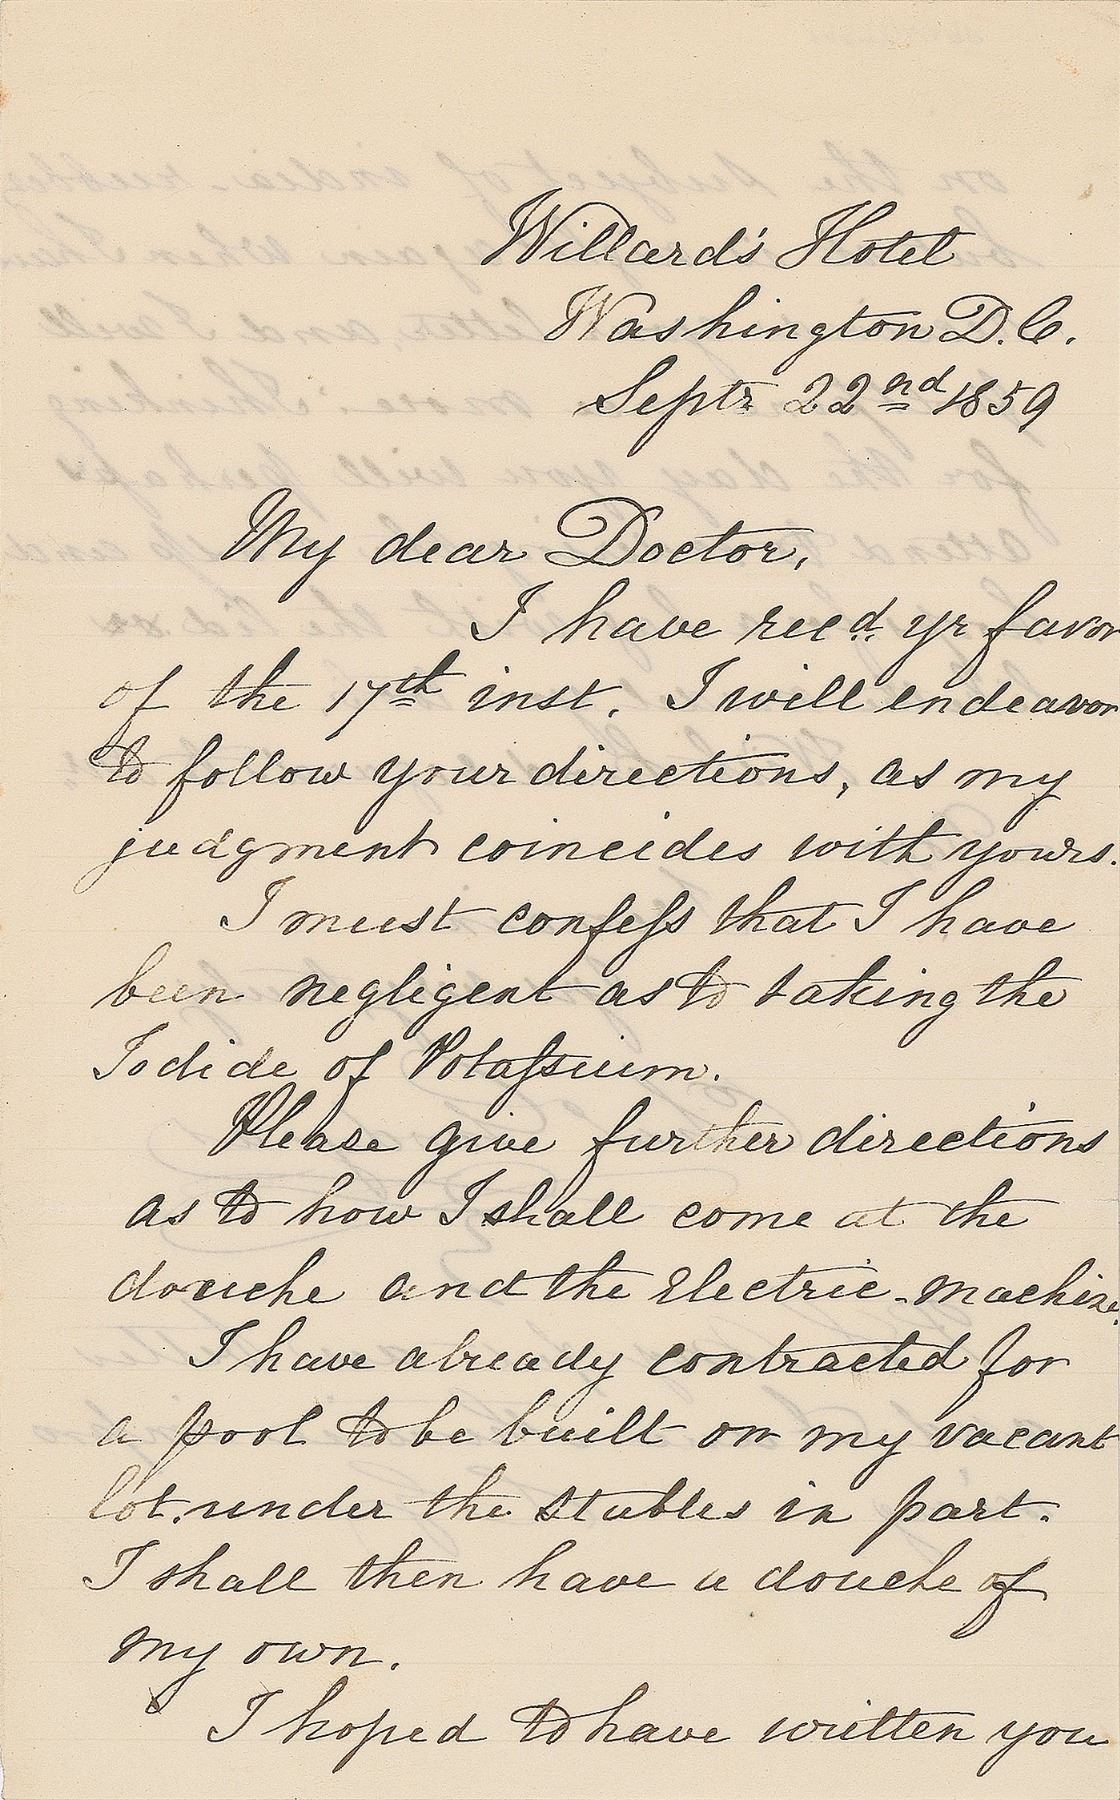 Willard's Hotel
Washington D.C.
Septr 22nd 1859
My dear Doctor,
I have recd. yr favor
of the 17th inst. I will endeavor
to follow your directions, as my
judgment coincides with yours.
I must confess that I have
been negligent as to taking the
Iodide of Potassium.
Please give further directions
as to how I shall come at the
douche and the Electric-machine.
I have already contracted for
a pool to be built on my vacant
lot, under the stables in part.
I shall then have a douche of
my own.
I hoped to have written you